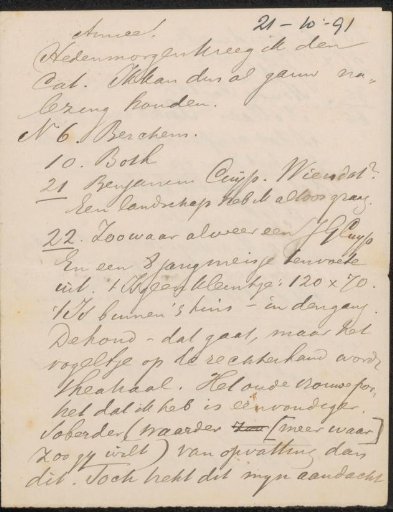 21-10-91
Amice!
Hedenmorgen kreeg ik den
Cat. Ik kan dus al gauw na-
lezing houden.
No 6. Berchem.
10. Both
21 Benjamin Cuyp. Wien dat?
Een landschap heb ik altoos graag.
22. Zoowaar alweer een JGCuyp
En een 8 jarig meisje ten voete
uit. 't Is geen kleintje: 120 x 70.
't Is binnen 's huis - in den gang.
De hond - dat gaat, maar het
vogeltje op de rechterhand wordt
theatraal. Het oude vrouwepor-
tret dat ik heb is eenvoudiger
soberder (waarder (meer waar)
zoo gy wilt) van opvatting dan
dit. Toch trekt dit myn aandacht